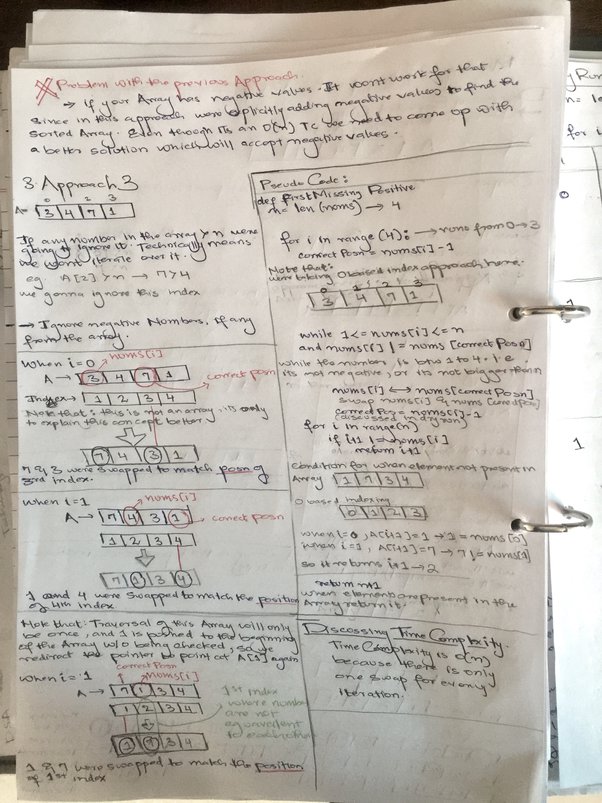 Problem with the previous Approach.
→ if your Array has negative values. It wont work for that
since in this approach were explicitly adding negative values to find the
sorted Array. Even though its an O(n) Tc we need to come up with
a better solution which will accept negative values.
3. Approach 3
0 2 3
A= 3 4 7 1
If any number in the array > n were
going to ignore it. Technically means
we wont iterate over it.
eg. A[2] > n → 7 > 4
we gonna ignore this index
→ Ignore negative Numbers, if any
from the array.
When i=0 nums[i]
A → 3 4 7 1 correct posn
Index → 1 2 3 4
Note that: this is not an array, its only
to explain this concept better.
7 4 3 1
7 & 3 were swapped to match posn of
3rd index.
when i=1 nums[i]
A → 7 4 3 1 correct posn
1 2 3 4
7 1 3 4
1 and 4 were swapped to match the position
of 4th index
Note that: Traversal of this Array will only
be once, and 1 is pushed to the beginning
of the Array w/o being checked, so we
redirect the pointer to point at A[1] again
correct Posn
when i=1 nums[i]
A → 7 1 3 4
1 2 3 4
1 7 3 4
1st index
where number
are not
equivalent
to
1 & 7 were swapped to match the position
of 1st index
Pseudo Code:
def first Missing Positive
n= len(nums) → 4
for i in range (4): → runs from 0→3
correct Posn = nums[i]-1
Note that:
were taking 0 based index approach here.
0 1 2 3
3 4 7 1
while 1<=nums[i]<=n
and nums[i] != nums [correct Posn]
while the number is btw 1 to 4. i.e
its not negative, or its not bigger than n
nums[i] ↔ nums[correct Posn]
swap nums[i] & nums [correct Posn]
correct Posn = nums[i]-1
(discussed in dry run)
for i in range(n)
if i+1 != nums[i]
return i+1
condition for when element not present in
Array 1 7 3 4
0 based indexing
0 1 2 3
when i=0, A[i+1]=1 → 1 = nums[0]
when i=1, A[i+1]=7 → 7 != nums[1]
so it returns i+1 → 2
return n+1
when elements are present in the
Array return it.
Discussing Time Complexity.
Time Complexity is O(n)
because there is only
one swap for every
iteration.